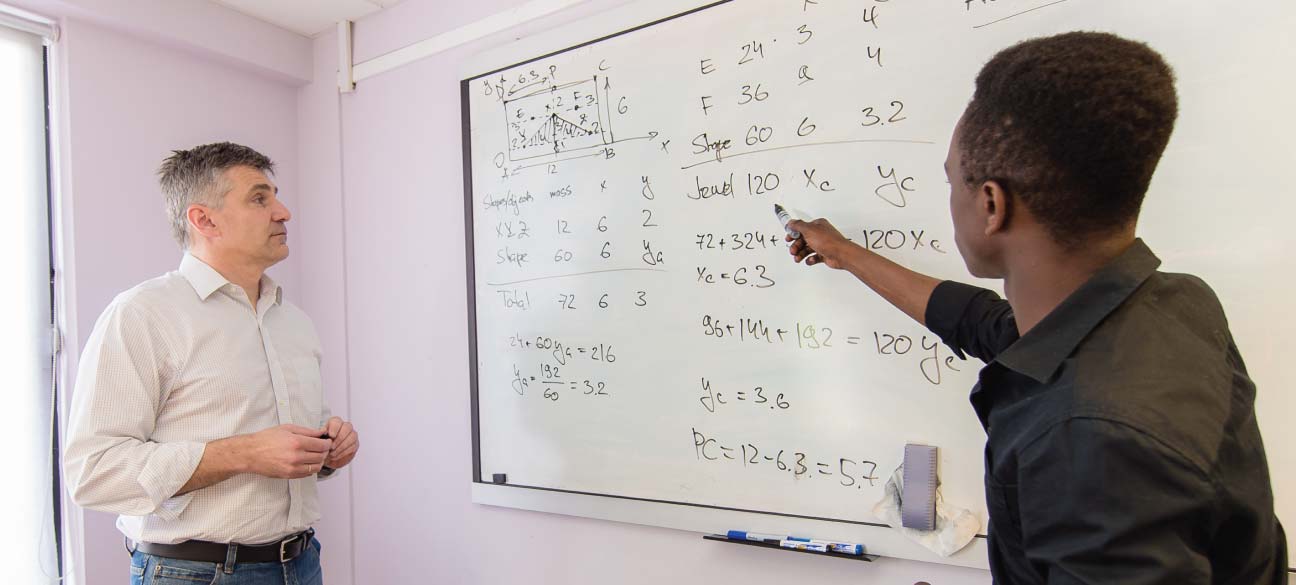 y 6.3 P C
D
E 2 F 3
6
2
O x
A 12 B
Shapes/objects mass x y
XYZ 12 6 2
Shape 60 6 ya
Total 72 6 3
24+60ya=216
ya=192/60=3.2
4
E 24 3 4
F 36 9
Shape 60 6 3.2
Jewel 120 xc yc
72+324+ = 120xc
xc=6.3
96+144+192=120yc
yc=3.6
PC=12-6.3=5.7